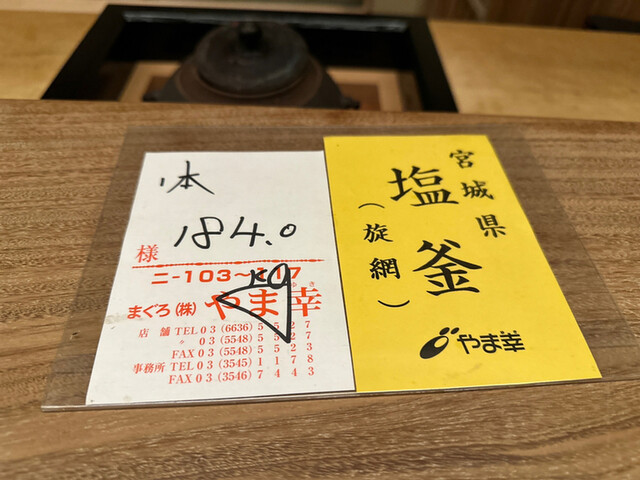 1本
184.0
kg
様
ニ-103~117
まぐろ(株)やま幸
店舗 TEL 03 (6636) 5527
〃 03 (5548) 5527
FAX 03 (5548) 5523
事務所 TEL 03 (3545) 1178
FAX 03 (3546) 7443
宮城県
塩釜
(旋網)
やま幸